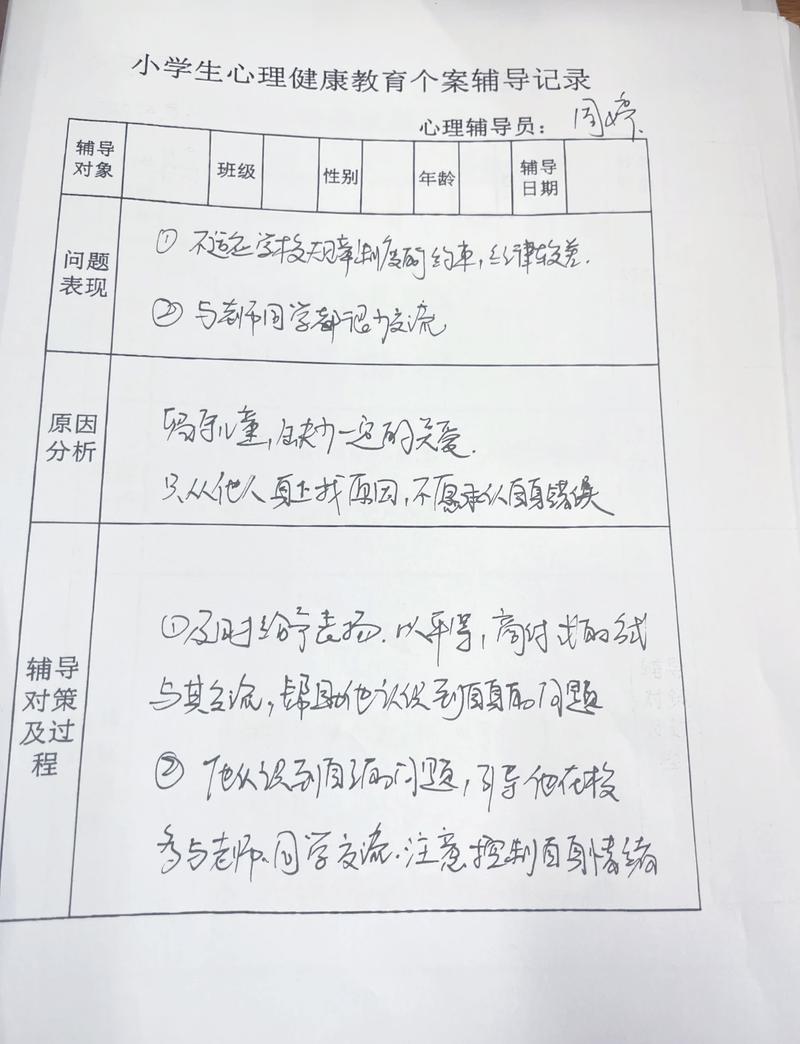 小学生心理健康教育个案辅导记录
心理辅导员：周婷
辅导对象 班级 性别 年龄 辅导日期
问题表现
① 不适应学校规章制度的约束，纪律较差.
② 与老师同学都很少交流
原因分析
留守儿童，缺少一定的关爱.
只从他人身上找原因，不愿承认自身错误
辅导对策及过程
①及时给予表扬.以平等，商讨式的方式
与其交流，帮助他认识到自身的问题
② 他认识到自己的问题，引导他在校
多与老师、同学交流.注意控制自身情绪